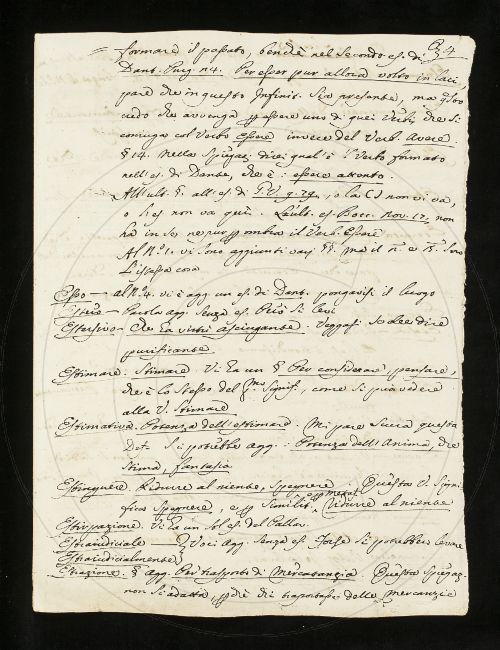 formare il passato, benchè nel secondo es. di
Dant. Purg. n 4. Per esser pur allora volto in laci
pare che in questo Infinit. sia presente, ma questo
credo che avvenga per essere uno di quei Verbi che si
coniuga col Verbo Essere invece del Verb. Avere
§ 14. Nella Spiegaz. direi qual è il Verbo formato
nell' es. di Dante, che è: essere attento.
All' ult. §. all' es. di o la (.) non vi va,
o l' es. non va qui. L' ult. es. Bocc. Nov. 17. non
ha in se neppur per ombra il Verb. Essere
Al N.º 1. vi sono aggiunti varj §§. ma il e 13. sono
l' istessa cosa
Esso — Al N.º 4. vi è agg. un es. di Dant. pongavisi il luogo
Parola agg. senza es. Però si levi
Estersivo — Che ha virtù asciugante. Veggasi se dee dire
purificante
Estimare. Stimare. Vi ha un § Per considerare, pensare,
che è lo stesso del signif., come si può vedere
alla V. Stimare
Estimativa. Potenza dell' estimare. Mi pare secca questa
Def. Si potrebbe agg.: Potenza dell' Anima, che
stima, fantasia
Estinguere. Ridurre al niente, spegnere. Questa V. signi
fica Spegnere, e per similit. Ridurre al niente
Estirpazione. Vi ha un sol es. del Pallav.
Estragiudiciale — } Voci Agg. senza es. Forse si potrebber levare
Estragiudicialmente }
Estrazione. § Agg. Per trasporto di Mercatanzia. Questa spiegaz.
non si adatta, perchè dir trasportasse delle mercanzie